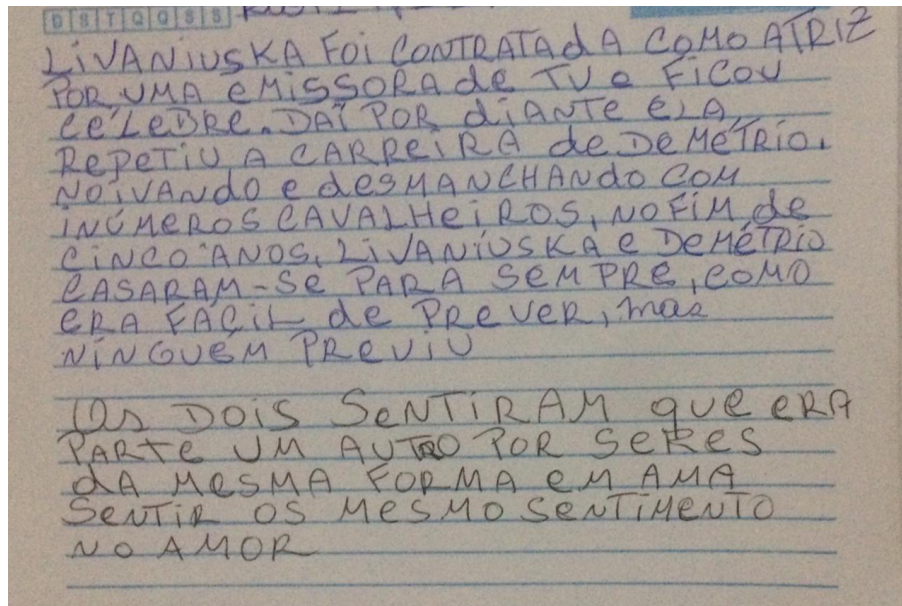 D S T Q Q S S
LIVANIUSKA FOI CONTRATADA COMO ATRIZ
POR UMA EMISSORA de TV e FICOU
CÉLEBRE. DAÍ POR diANTE ELA
REPETIU A CARREIRA de DEMÉTRIO.
NOIVANDO e desMANCHANdo COM
INÚMEROS CAVALHEIROS, NO FIM de
CINCO ANOS. LIVANÍUSKA e DEMÉTRIO
CASARAM-SE PARA SEMPRE, COMO
ERA FACIL de PREVER, mas
NINGUÉM PREVIU
Os DOIS SENTIRAM que ERA
PARTE UM AUTRO POR SERES
dA MESMA FORMA EM AMA
SENTIR OS MESMO SENTIMENTO
NO AMOR